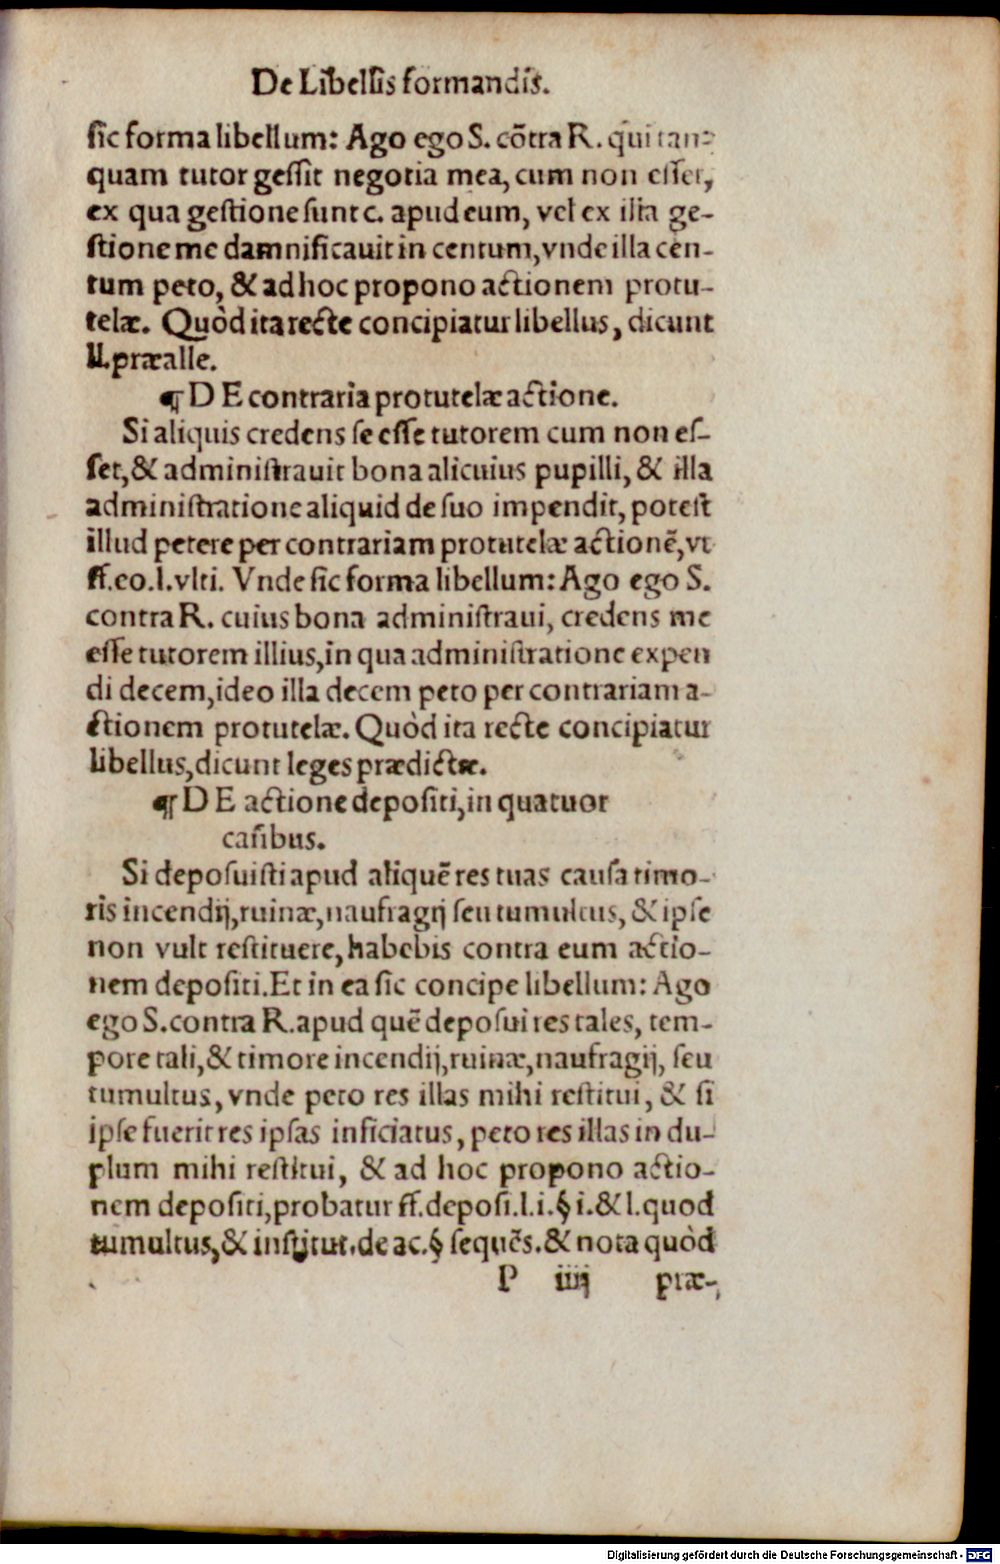 De Libellis formandis.
sic forma libellum: Ago ego S. cōtra R. qui tan-
quam tutor gessit negotia mea, cum non esset,
ex qua gestione sunt c. apud eum, vel ex illa ge-
stione me damnificauit in centum, vnde illa cen-
tum peto, & ad hoc propono actionem protu-
telæ. Quòd ita recte concipiatur libellus, dicunt
ll. præalle.
¶ D E contraria protutelæ actione.
Si aliquis credens se esse tutorem cum non es-
set, & administrauit bona alicuius pupilli, & illa
administratione aliquid de suo impendit, potest
illud petere per contrariam protutelæ actionē, vt
ff. eo. l. vlti. Vnde sic forma libellum: Ago ego S.
contra R. cuius bona administraui, credens me
esse tutorem illius, in qua administratione expen
di decem, ideo illa decem peto per contrariam a-
ctionem protutelæ. Quòd ita recte concipiatur
libellus, dicunt leges prædictæ.
¶ D E actione depositi, in quatuor
casibus.
Si deposuisti apud aliquē res tuas causa timo-
ris incendij, ruinæ, naufragij seu tumultus, & ipse
non vult restituere, habebis contra eum actio-
nem depositi. Et in ea sic concipe libellum: Ago
ego S. contra R. apud quē deposui res tales, tem-
pore tali, & timore incendij, ruinæ, naufragij, seu
tumultus, vnde peto res illas mihi restitui, & si
ipse fuerit res ipsas inficiatus, peto res illas in du-
plum mihi restitui, & ad hoc propono actio-
nem depositi, probatur ff. deposi. l. i. § i. & l. quod
tumultus, & institut. de ac. § sequēs. & nota quòd
P iiij præ-
Digitalisierung gefördert durch die Deutsche Forschungsgemeinschaft - DFG